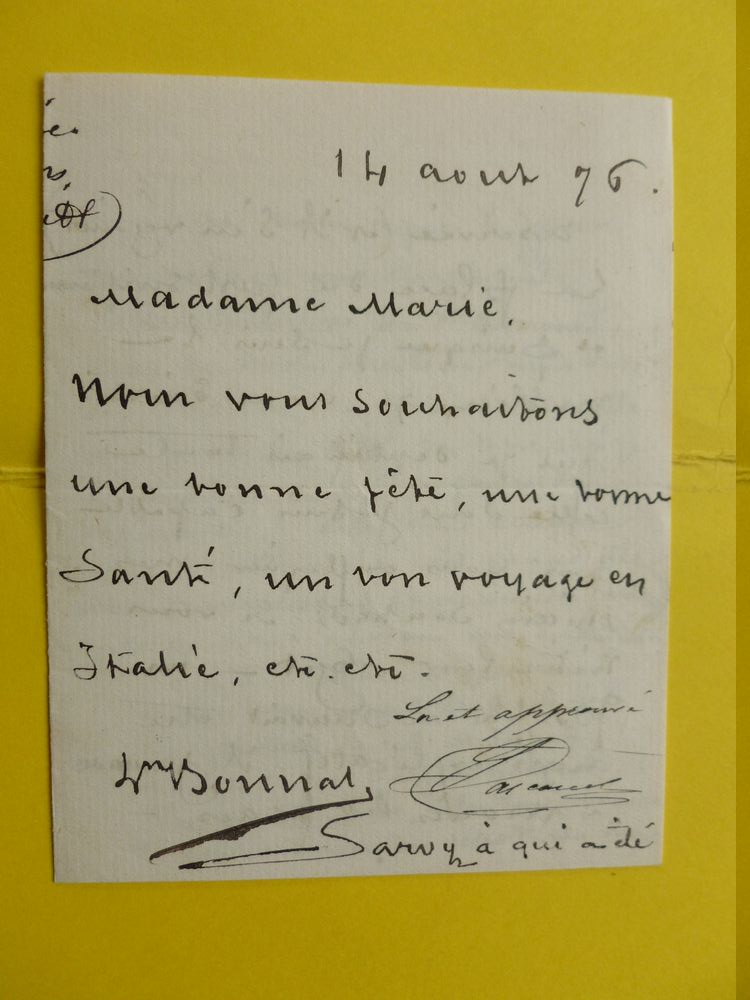 14 aout 76.
Madame Marie,
Nous vous souhaitons
une bonne fête, une bonne
Santé, un bon voyage en
Italie, etc. etc.
Lu et approuvé
Ln Bonnat
Sarvy à qui a été